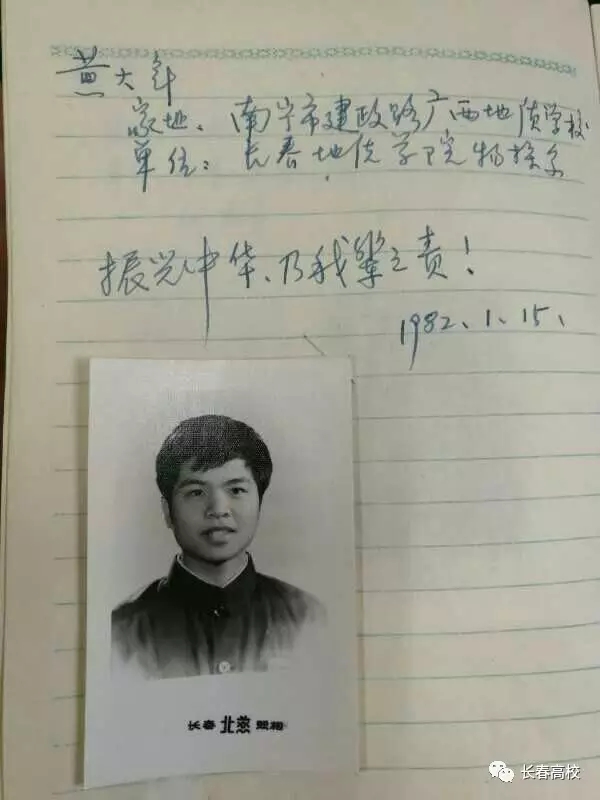 黄大年
家址：南宁市建政路广西地质学校
单位：长春地质学院物探系
振兴中华、乃我辈之责！
1982、1、15、
长春 北燕 照相
长春高校